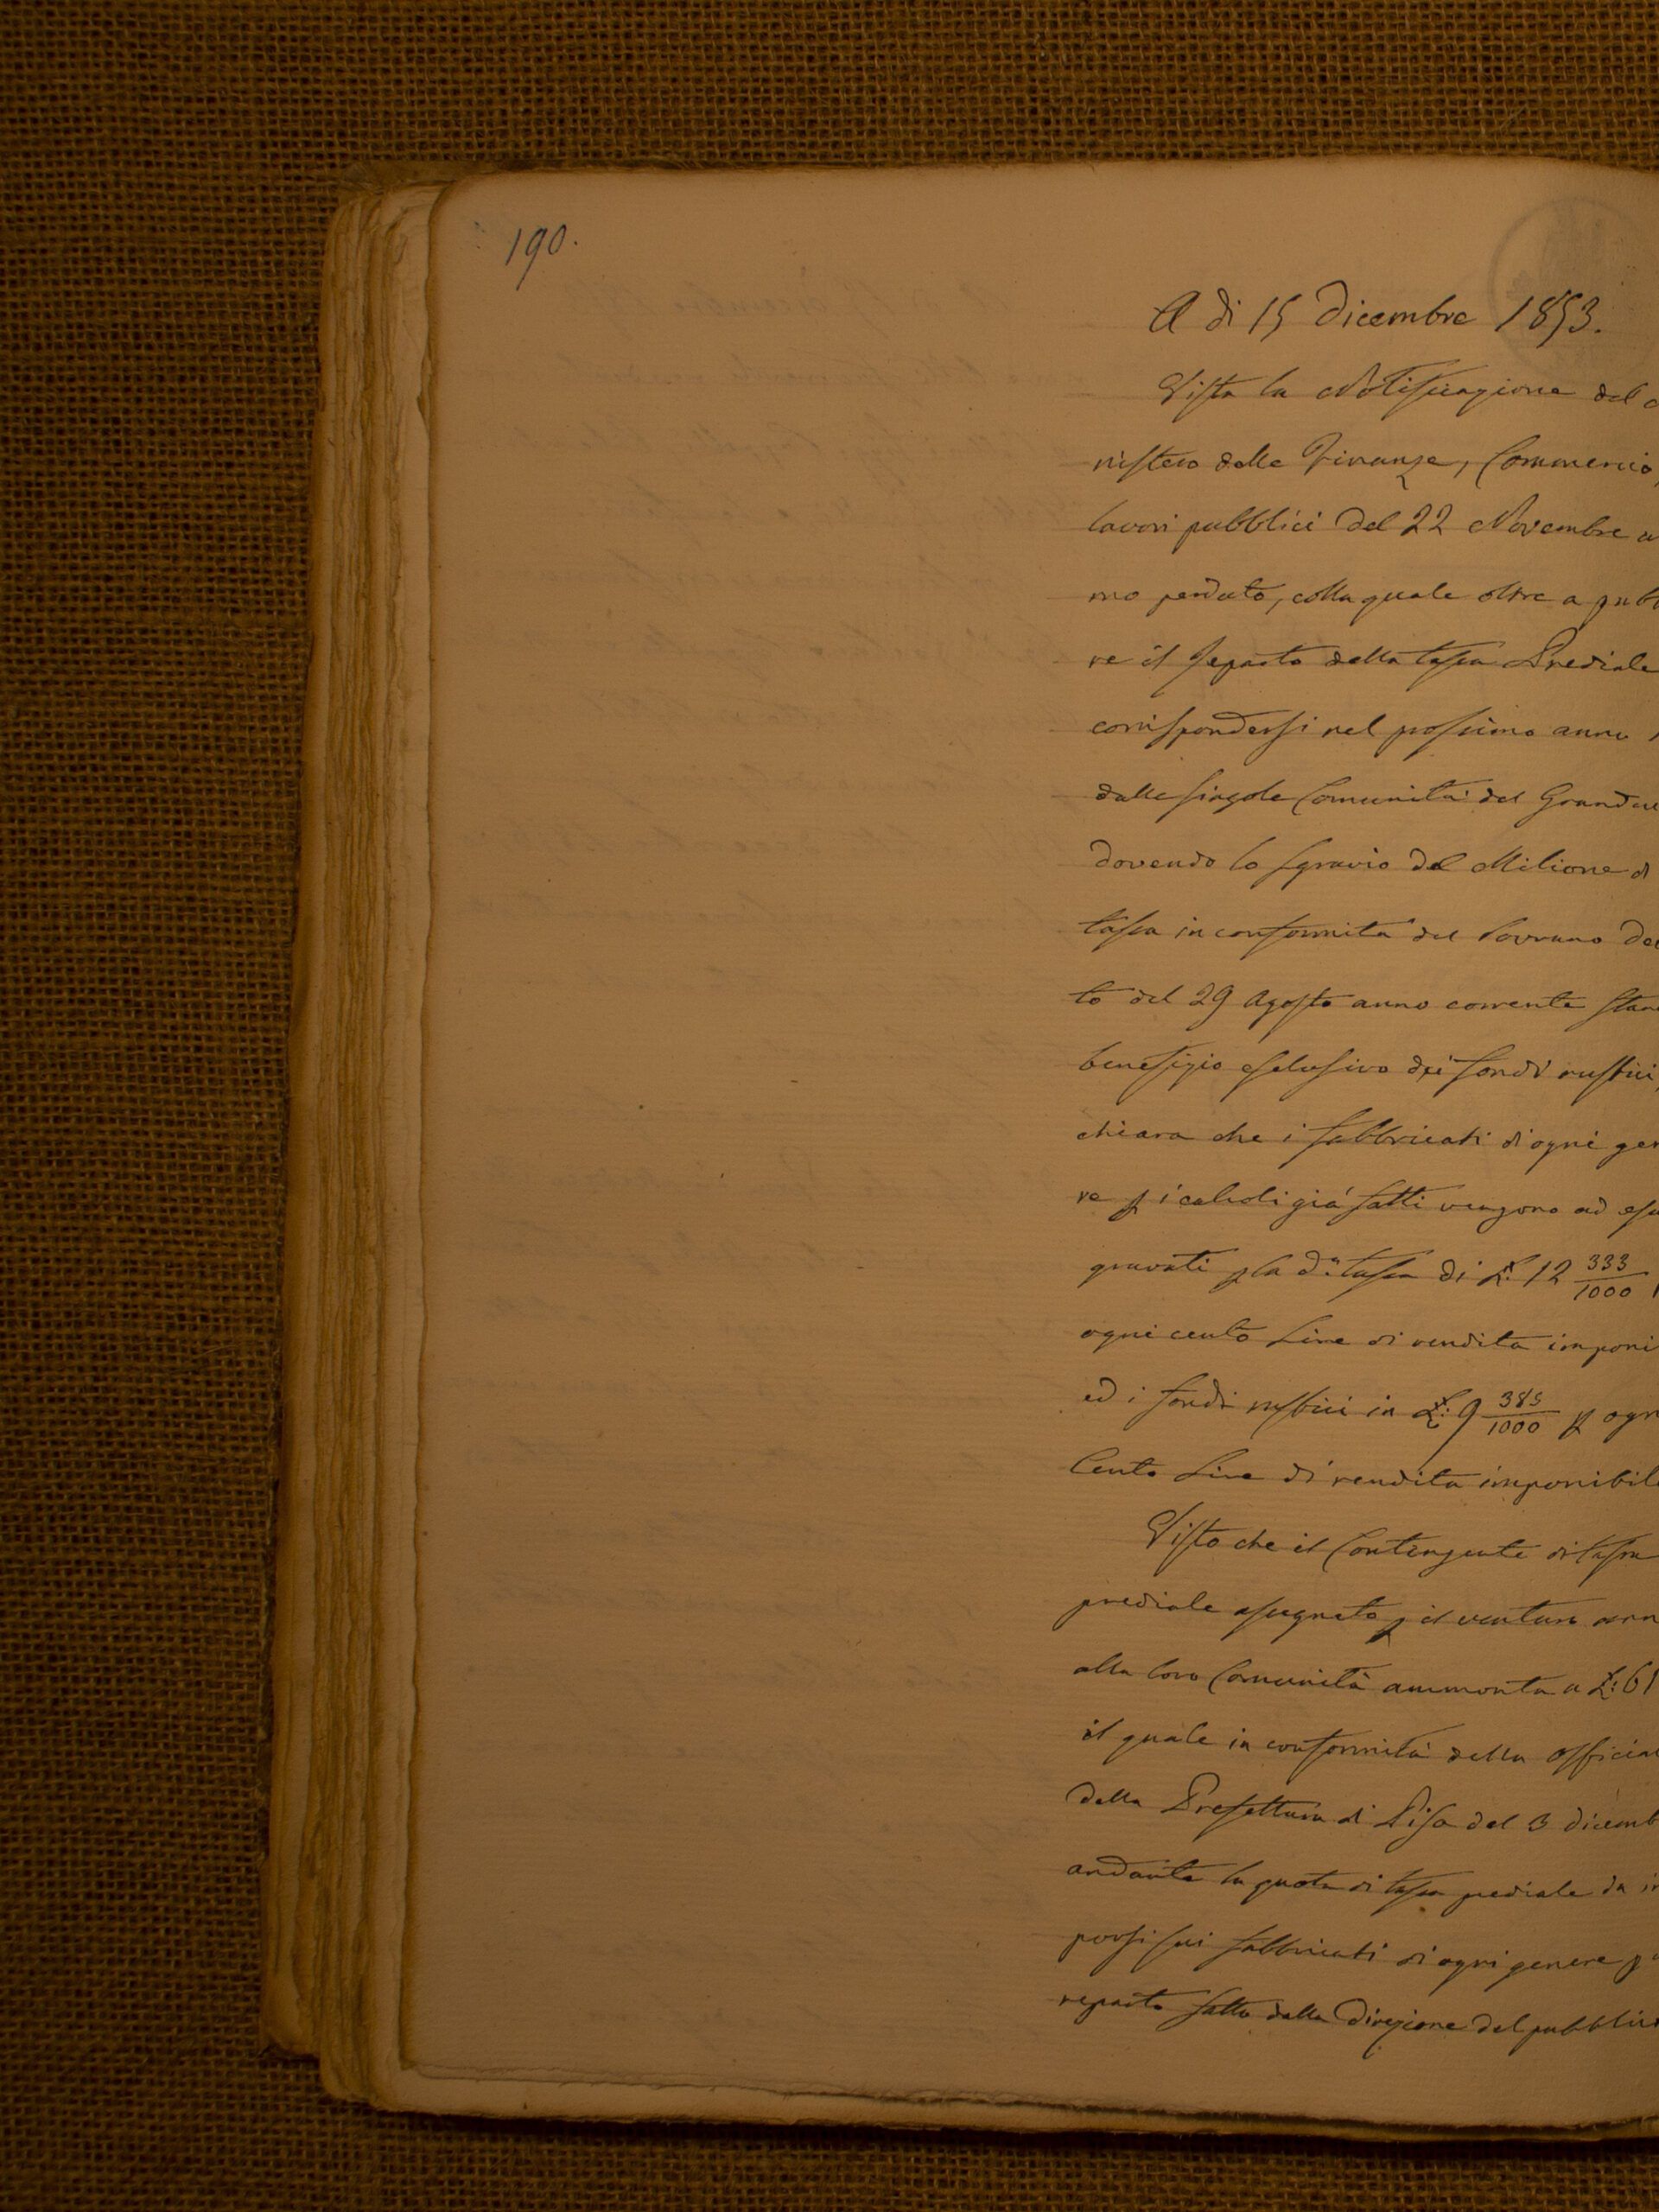 190.
A di 15 Dicembre 1853.
Vista la Notificazione del
nistero delle Finanze, Commercio,
lavori pubblici del 22 Novembre
mo perduto, colla quale oltre a pub
re il Reparto della tassa Prediale
corrispondersi nel prossimo anno
dalle singole Comunità del Grandu
dovendo lo sgravio del Milione d
tassa in conformità del Sovrano De
to del 29 Agosto anno corrente stare
benefizio esclusivo dei fondi rustici,
chiara che i fabbricati di ogni gen
re p i calcoli già fatti vengono ad ess
gravati p la d.ª tassa di L. 12 333/1000
ogni cento Lire di rendita imponi
ed i fondi rustici in L: 9 385/1000 p ogn
Cento Lire di rendita imponibile
Visto che il Contingente di tassa
prediale assegnato p il venturo ann
alla loro Comunità ammonta a L: 61
il quale in conformità della Official
della Prefettura di Pisa del 3 dicemb
andante la quota di tassa prediale da i
porsi sui fabbricati di ogni genere p
reparto fatto dalla Direzione del pubblic